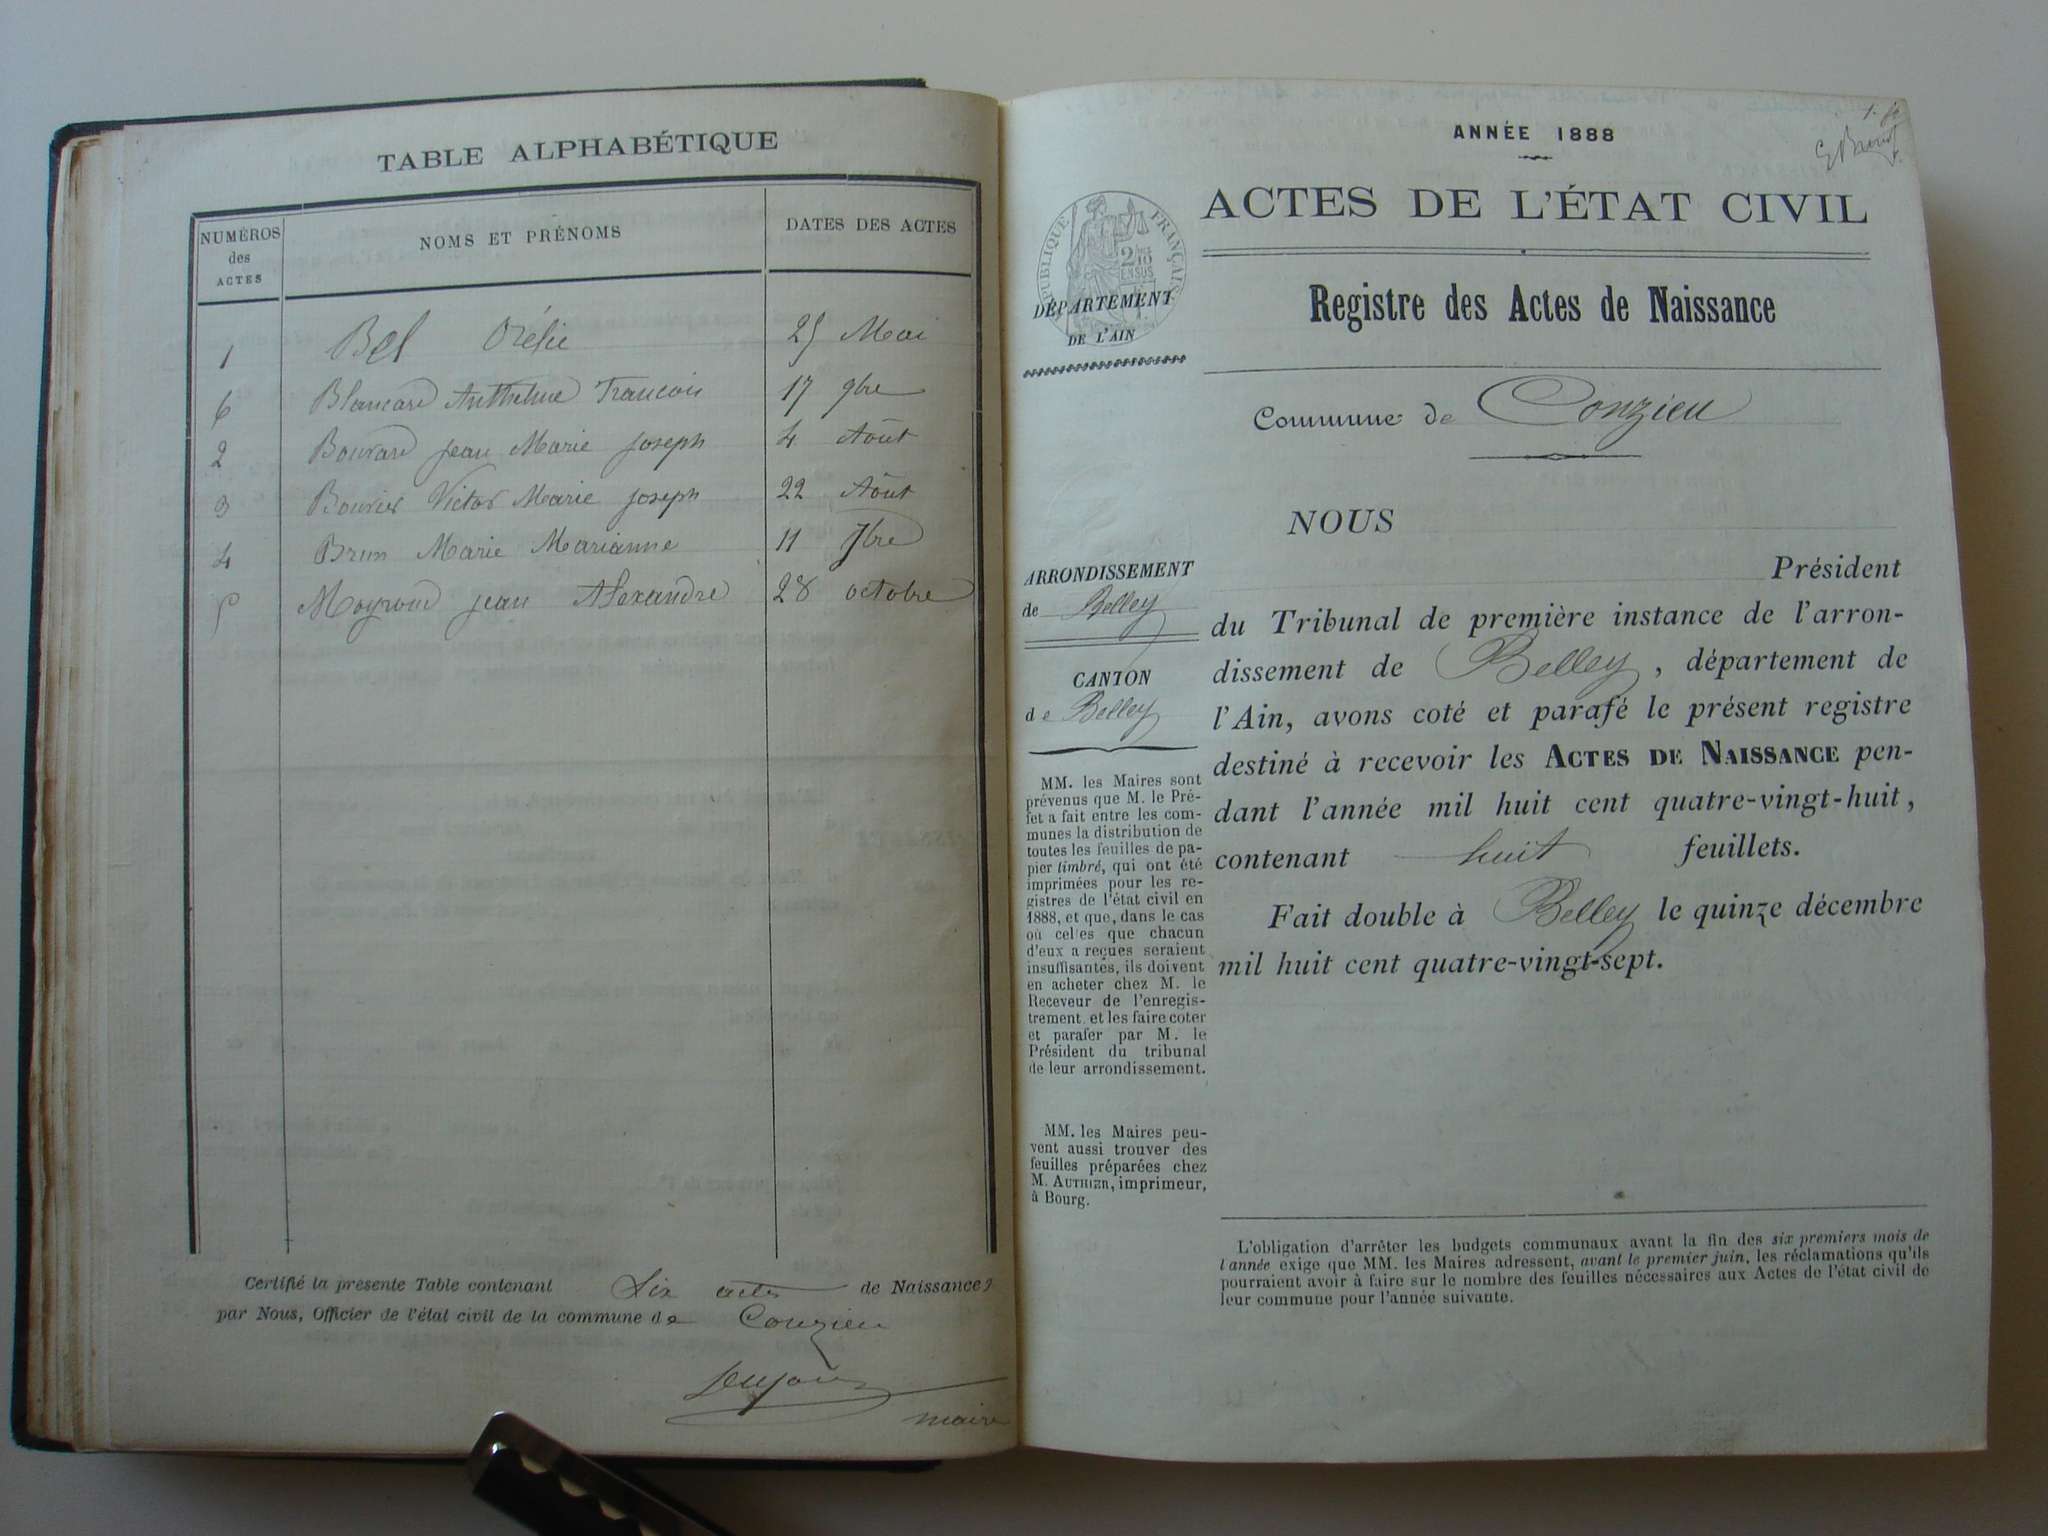 TABLE ALPHABÉTIQUE
NUMÉROS des ACTES
NOMS ET PRÉNOMS
DATES DES ACTES
1 Bel Orélie 25 Mai
6 Blancard Anthelme Francois 17 9bre
2 Bouvard Jean Marie Joseph 4 Août
3 Bouvier Victor Marie Joseph 22 Août
4 Brun Marie Marianne 11 7bre
5 Moyroud Jean Alexandre 28 octobre
Certifié la présente Table contenant Six actes de Naissance
par Nous, Officier de l'état civil de la commune de Conzieu
maire
ANNÉE 1888
ACTES DE L'ÉTAT CIVIL
RÉPUBLIQUE FRANÇAISE
DÉPARTEMENT
DE L'AIN
Registre des Actes de Naissance
Commune de Conzieu
ARRONDISSEMENT
de Belley
CANTON
de Belley
MM. les Maires sont
prévenus que M. le Pré-
fet a fait entre les com-
munes la distribution de
toutes les feuilles de pa-
pier timbré, qui ont été
imprimées pour les re-
gistres de l'état civil en
1888, et que, dans le cas
où celles que chacun
d'eux a reçues seraient
insuffisantes, ils doivent
en acheter chez M. le
Receveur de l'enregis-
trement et les faire coter
et parafer par M. le
Président du tribunal
de leur arrondissement.
MM. les Maires peu-
vent aussi trouver des
feuilles préparées chez
M. AUTHIER, imprimeur,
à Bourg.
NOUS
Président
du Tribunal de première instance de l'arron-
dissement de Belley, département de
l'Ain, avons coté et parafé le présent registre
destiné à recevoir les ACTES DE NAISSANCE pen-
dant l'année mil huit cent quatre-vingt-huit,
contenant huit feuillets.
Fait double à Belley le quinze décembre
mil huit cent quatre-vingt-sept.
L'obligation d'arrêter les budgets communaux avant la fin des six premiers mois de
l'année exige que MM. les Maires adressent, avant le premier juin, les réclamations qu'ils
pourraient avoir à faire sur le nombre des feuilles nécessaires aux Actes de l'état civil de
leur commune pour l'année suivante.